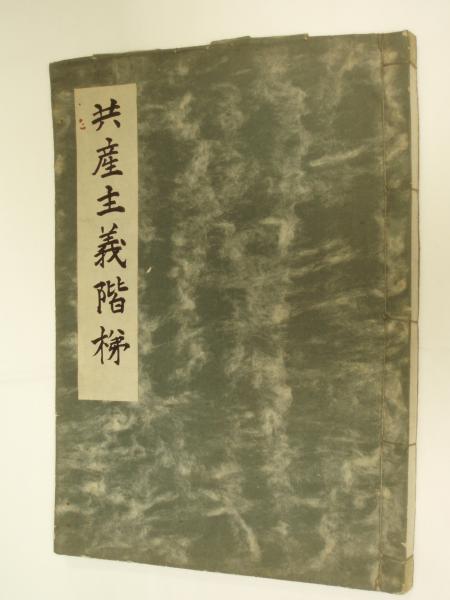 共産主義階梯